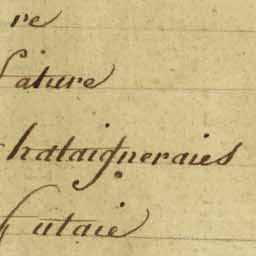 re
ature
hataigneraies
utaie